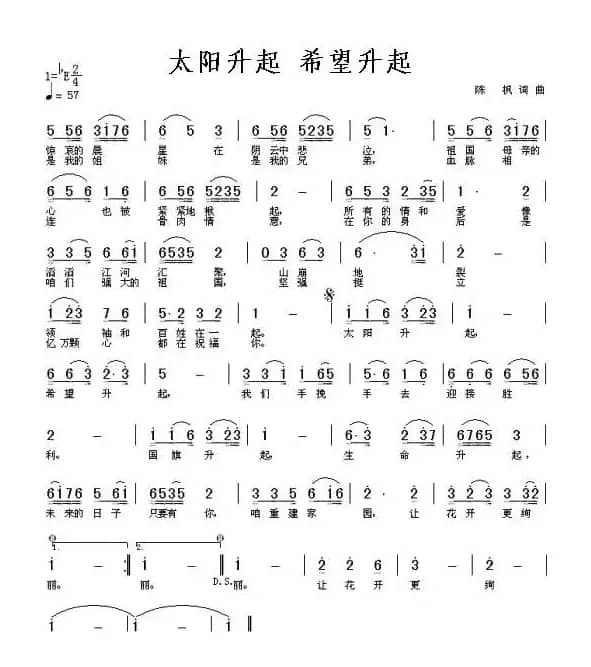 太阳升起 希望升起
1=♭E 2/4
♩=57
陈 枫 词 曲
5 56 3i76 | 6 5 3 | 5 56 5235 | 5 i· | 5 56 3i76 |
惊哀的晨 星 在 阴云中悲 泣， 祖国 母亲的
是我的姐 妹 是我的兄 弟， 血脉 相
6 5 6 i 6 | 56 5235 | 2 – | 6 53 3 2 35 | 2· 3 |
心 也被 紧紧地揪 起， 所有的情和 爱 像
连 骨肉情 意， 在你的身 后 是
3 3 5 6 6i | 6535 2 | 0 3 6 3 | 6· 3i | 2 – |
滔滔 江河 汇 聚， 山崩 地 裂
咱们 强大的 祖 国， 坚强 挺 立
i 23 7 6 | 5· 2 3 2 | i – | i i 6 3 23 | 2 – |
领 袖和 百姓在一 起。 太阳升 起，
亿万颗 心 都在祝福 你。
6 6 3 2·3 | 5 – | 3 3 i 6 5 | 5 6 3 | 2 3 6 5 |
希望升 起， 我们 手挽 手去 迎接胜
2 – | i i 6 3 23 | 2 – | 6·3 2 37 | 6765 3 |
利。 国旗升 起， 生 命升 起，
6i76 5 6i | 6535 2 | 3 3 5 6 i6 | 3· 23 | i 2 3 3 32 |
未来的日子 只要有 你， 咱重建家 园， 让 花开更绚
1. 2.
i – :| i – | i – | 2 2 6 | i 2 3 |
丽。 丽。 D.S. 丽。 让花开更 绚
i – | i – | i 0 |
丽。